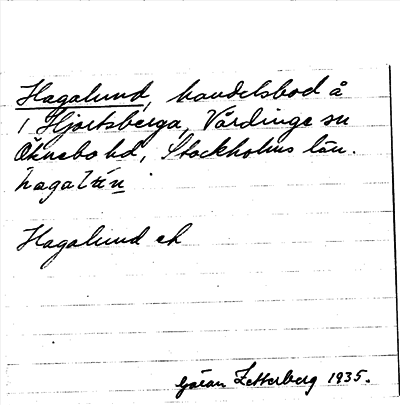 Hagalund, handelsbod å
1 Hjortsberga, Vårdinge sn
Öknebo hd, Stockholms län.
Hagalund ek
Göran Zetterberg 1935.